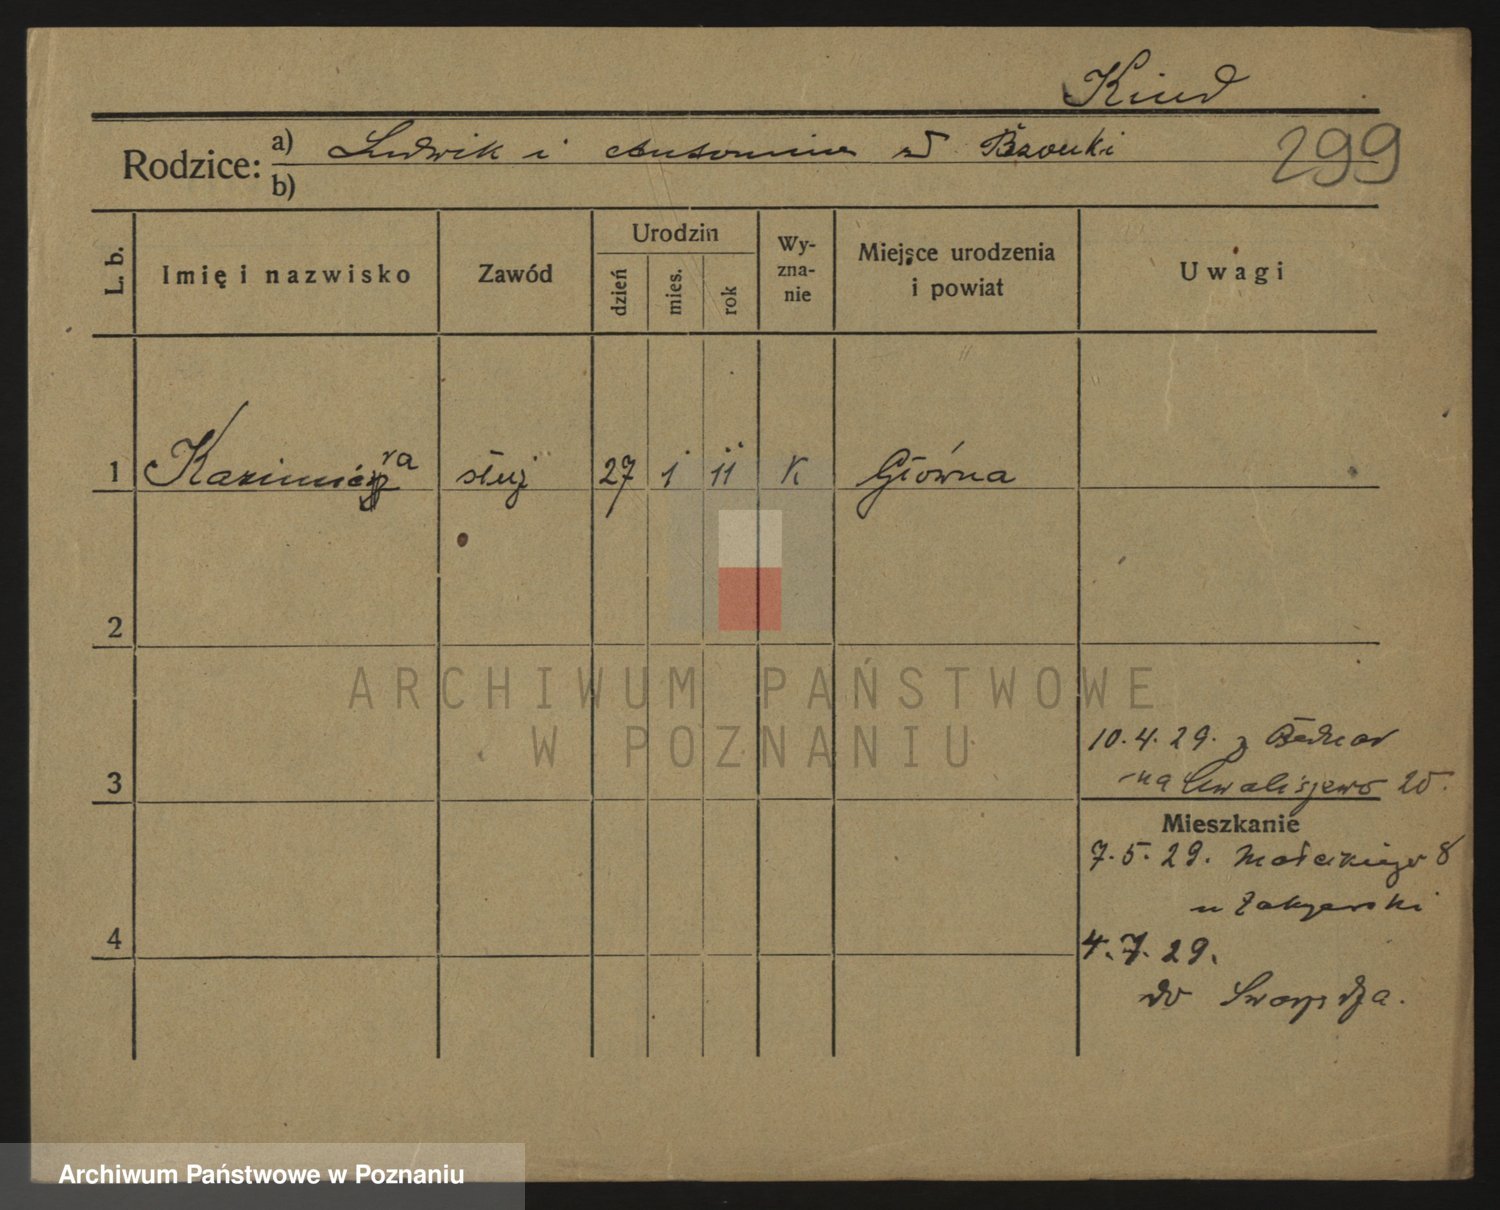 Kind
Rodzice: a) Ludwik i Antonina z d. 299
b)
L. b. Imię i nazwisko Zawód Urodzin dzień mies. rok Wy-zna-nie Miejsce urodzenia i powiat Uwagi
1 Kazimiera służ 27 1 11 K Główna
2
ARCHIWUM PAŃSTWOWE
W POZNANIU
10.4.29. z Bednar
3 na Chwaliszewo 25.
Mieszkanie
7.5.29. Małeckiego 8
u Zakrzewski
4 4.7.29.
do Swarzędza.
Archiwum Państwowe w Poznaniu